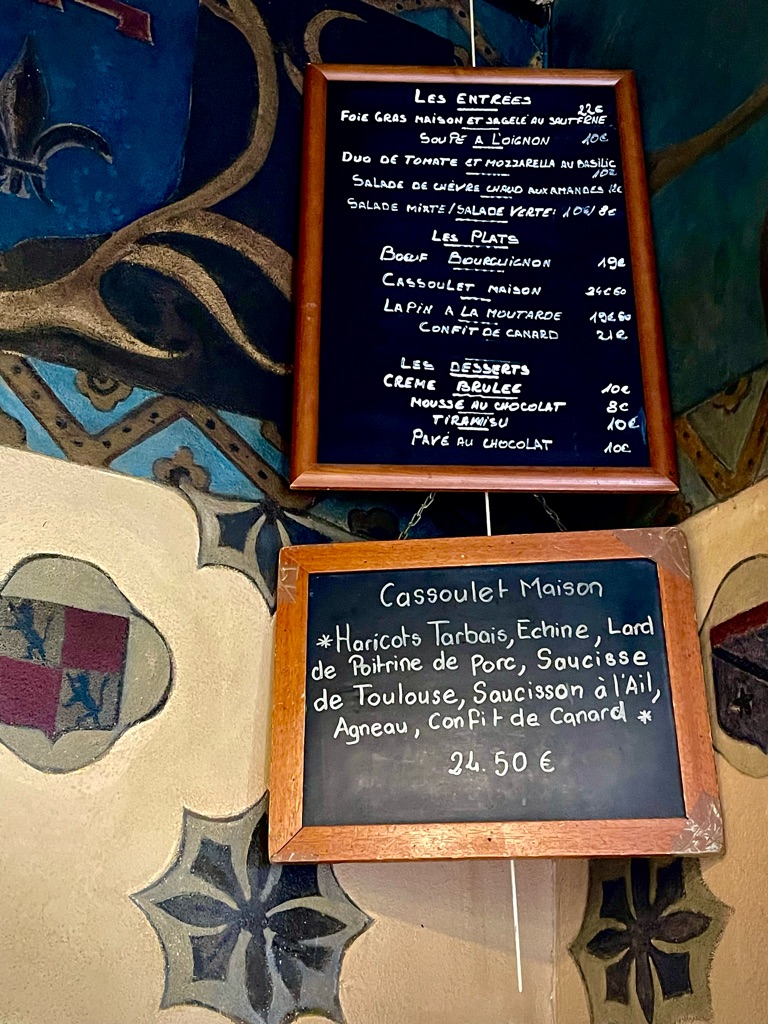 LES ENTRÉES
22€
FOIE GRAS MAISON ET SA GELÉ AU SAUTERNE
SOUPE A L'OIGNON 10€
DUO DE TOMATE ET MOZZARELLA AU BASILIC
10€
SALADE DE CHÈVRE CHAUD AUX AMANDES 12€
SALADE MIXTE/SALADE VERTE: 10€/8€
LES PLATS
BŒUF BOURGUIGNON 19€
CASSOULET MAISON 24€50
LAPIN A LA MOUTARDE 19€50
CONFIT DE CANARD 21€
LES DESSERTS
CREME BRULEE 10€
MOUSSE AU CHOCOLAT 8€
TIRAMISU 10€
PAVÉ AU CHOCOLAT 10€
Cassoulet Maison
*Haricots Tarbais, Echine, Lard
de Poitrine de porc, Saucisse
de Toulouse, Saucisson à l'Ail,
Agneau, Confit de Canard *
24.50 €